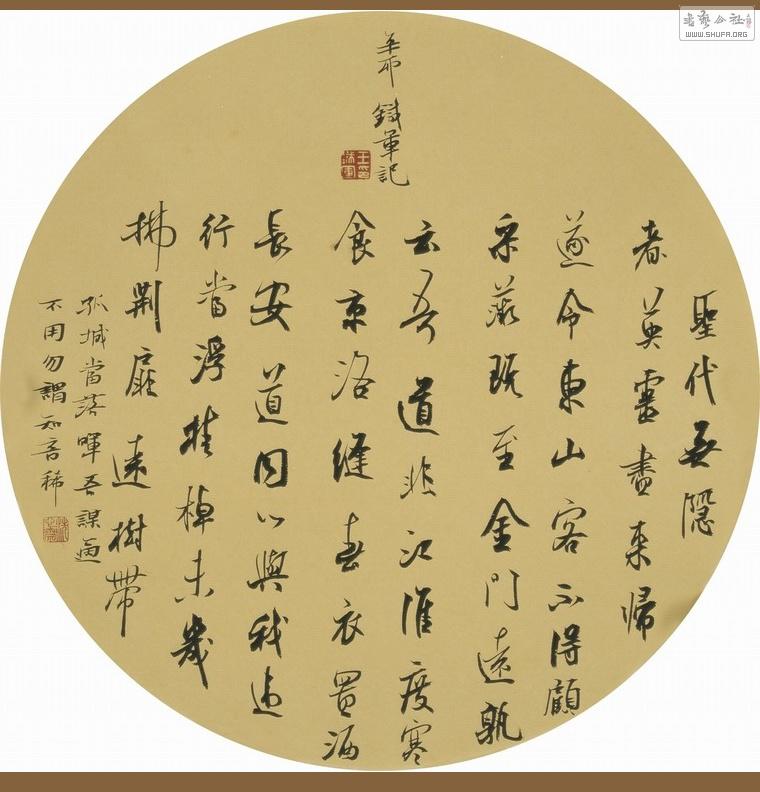 聖代無隱
者英靈盡來歸
遂令東山客不得顧
采薇既至金門遠孰
云吾道非江淮度寒
食京洛縫春衣置酒
長安道同心與我違
行當浮桂棹未幾
拂荆扉遠樹帶
孤城當落暉吾謀適
不用勿謂知音稀
鐵軍記
書藝公社
WWW.SHUFA.ORG